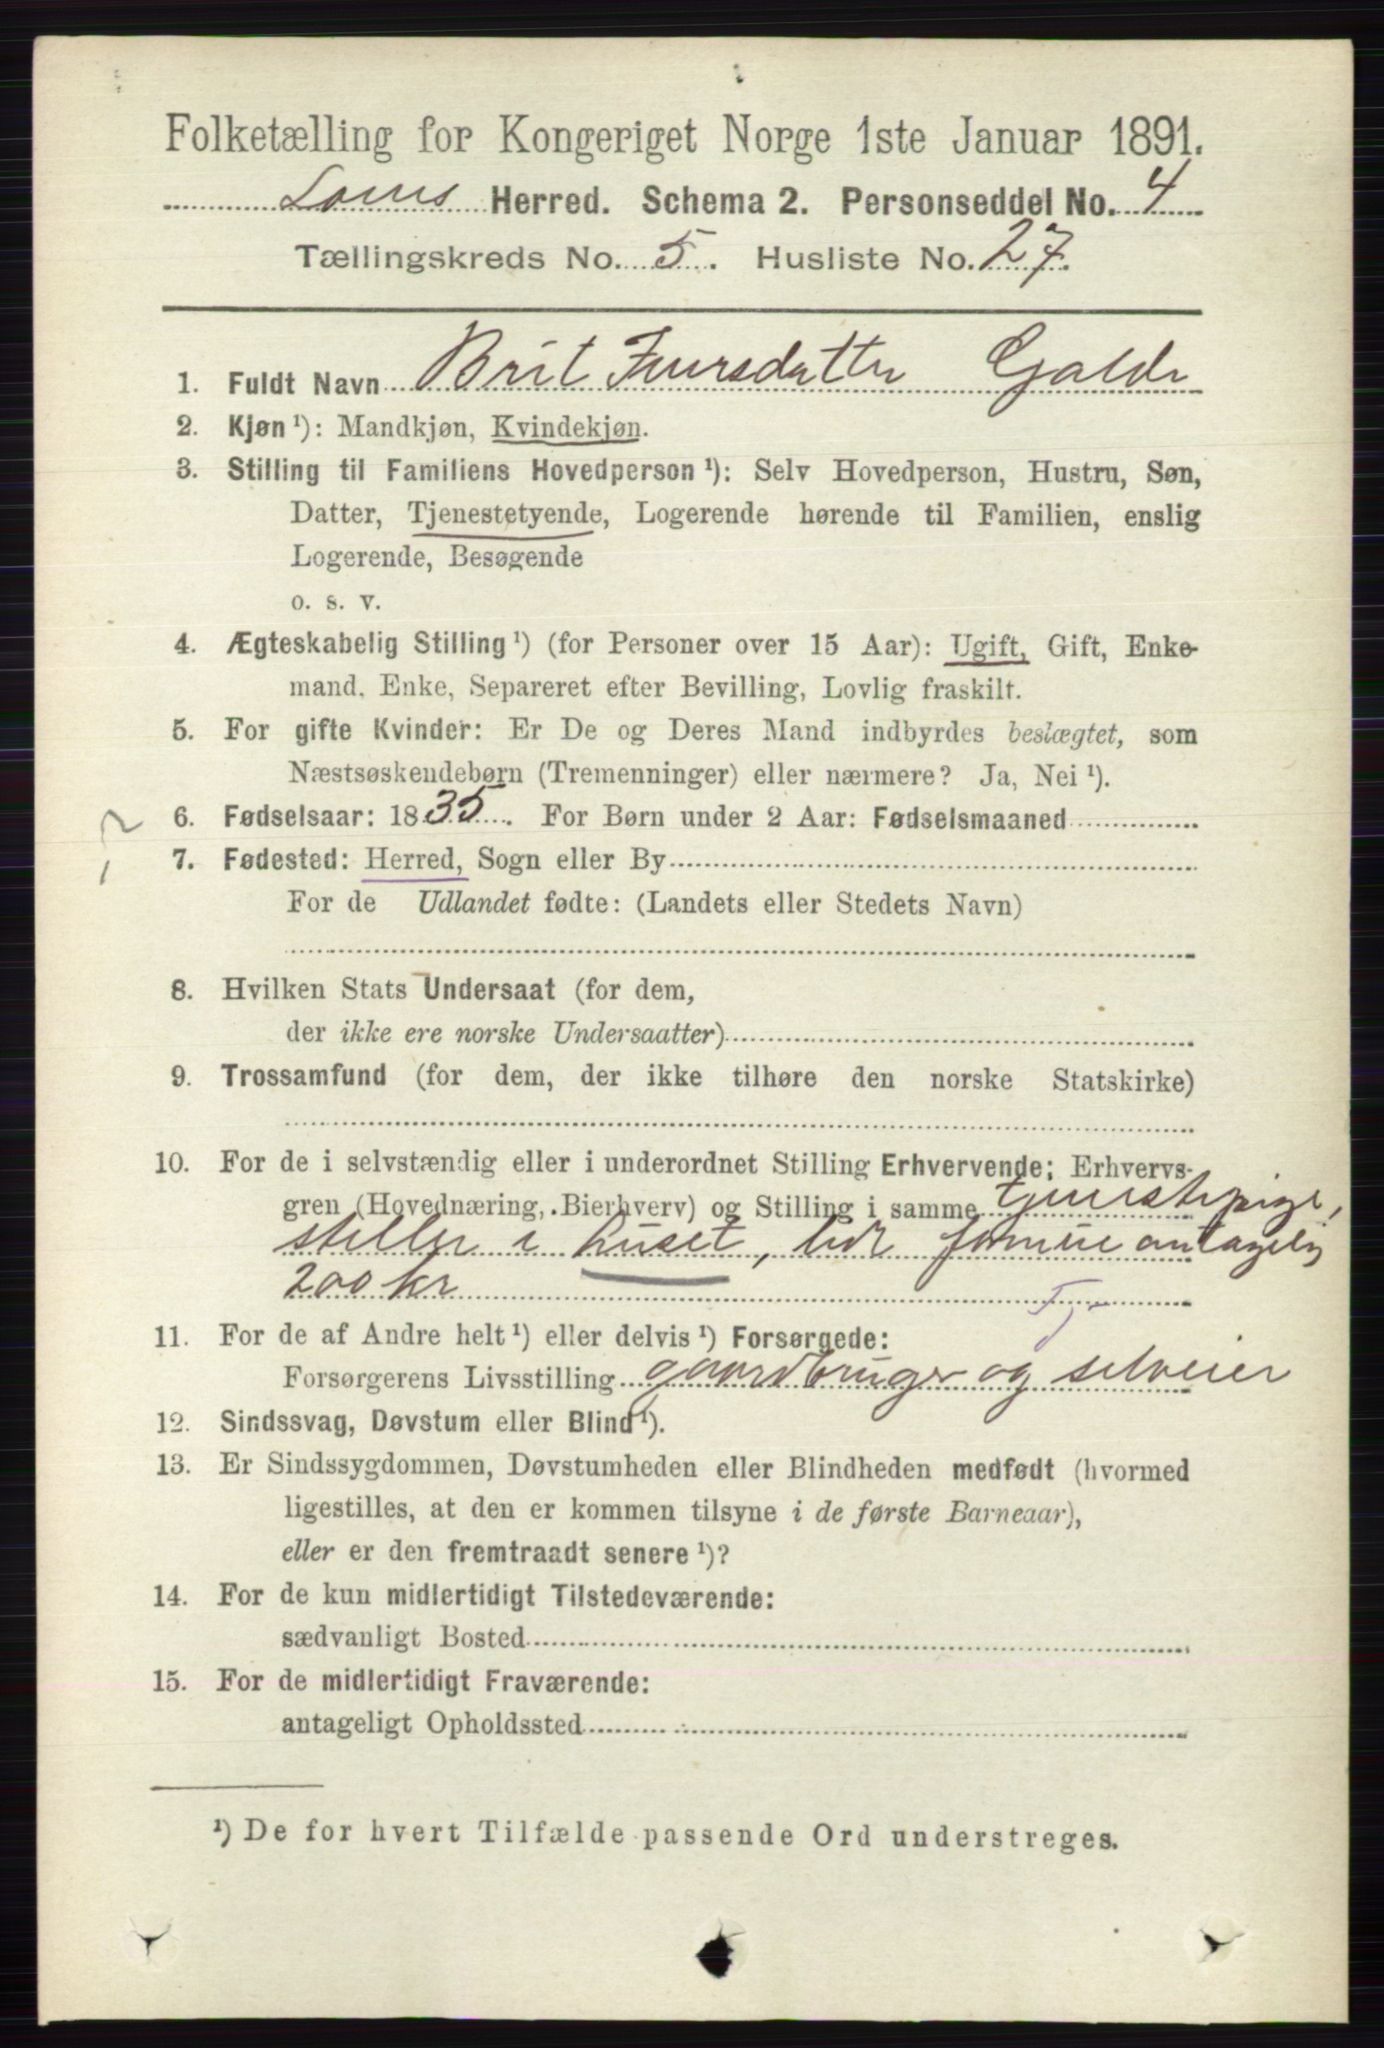 Folketælling for Kongeriget Norge 1ste Januar 1891.
Loms Herred. Schema 2. Personseddel No. 4
Tællingskreds No. 5. Husliste No. 27.
1. Fuldt Navn Brit Iversdatter Galde
2. Kjøn ¹): Mandkjøn, Kvindekjøn.
3. Stilling til Familiens Hovedperson ¹): Selv Hovedperson, Hustru, Søn,
Datter, Tjenestetyende, Logerende hørende til Familien, enslig
Logerende, Besøgende
o. s. v.
4. Ægteskabelig Stilling ¹) (for Personer over 15 Aar): Ugift, Gift, Enke-
mand, Enke, Separeret efter Bevilling, Lovlig fraskilt.
5. For gifte Kvinder: Er De og Deres Mand indbyrdes beslægtet, som
Næstsøskendebørn (Tremenninger) eller nærmere? Ja, Nei ¹).
6. Fødselsaar: 1835. For Børn under 2 Aar: Fødselsmaaned
7. Fødested: Herred, Sogn eller By
For de Udlandet fødte: (Landets eller Stedets Navn)
8. Hvilken Stats Undersaat (for dem,
der ikke ere norske Undersaatter)
9. Trossamfund (for dem, der ikke tilhøre den norske Statskirke)
10. For de i selvstændig eller i underordnet Stilling Erhvervende: Erhvervs-
gren (Hovednæring, Bierhverv) og Stilling i samme tjenestepige,
steller i huset, lidt formue antagelig
200 kr
Tj
11. For de af Andre helt ¹) eller delvis ¹) Forsørgede:
Forsørgerens Livsstilling gaardbruger og selveier
12. Sindssvag, Døvstum eller Blind ¹).
13. Er Sindssygdommen, Døvstumheden eller Blindheden medfødt (hvormed
ligestilles, at den er kommen tilsyne i de første Barneaar),
eller er den fremtraadt senere ¹)?
14. For de kun midlertidigt Tilstedeværende:
sædvanligt Bosted
15. For de midlertidigt Fraværende:
antageligt Opholdssted
¹) De for hvert Tilfælde passende Ord understreges.